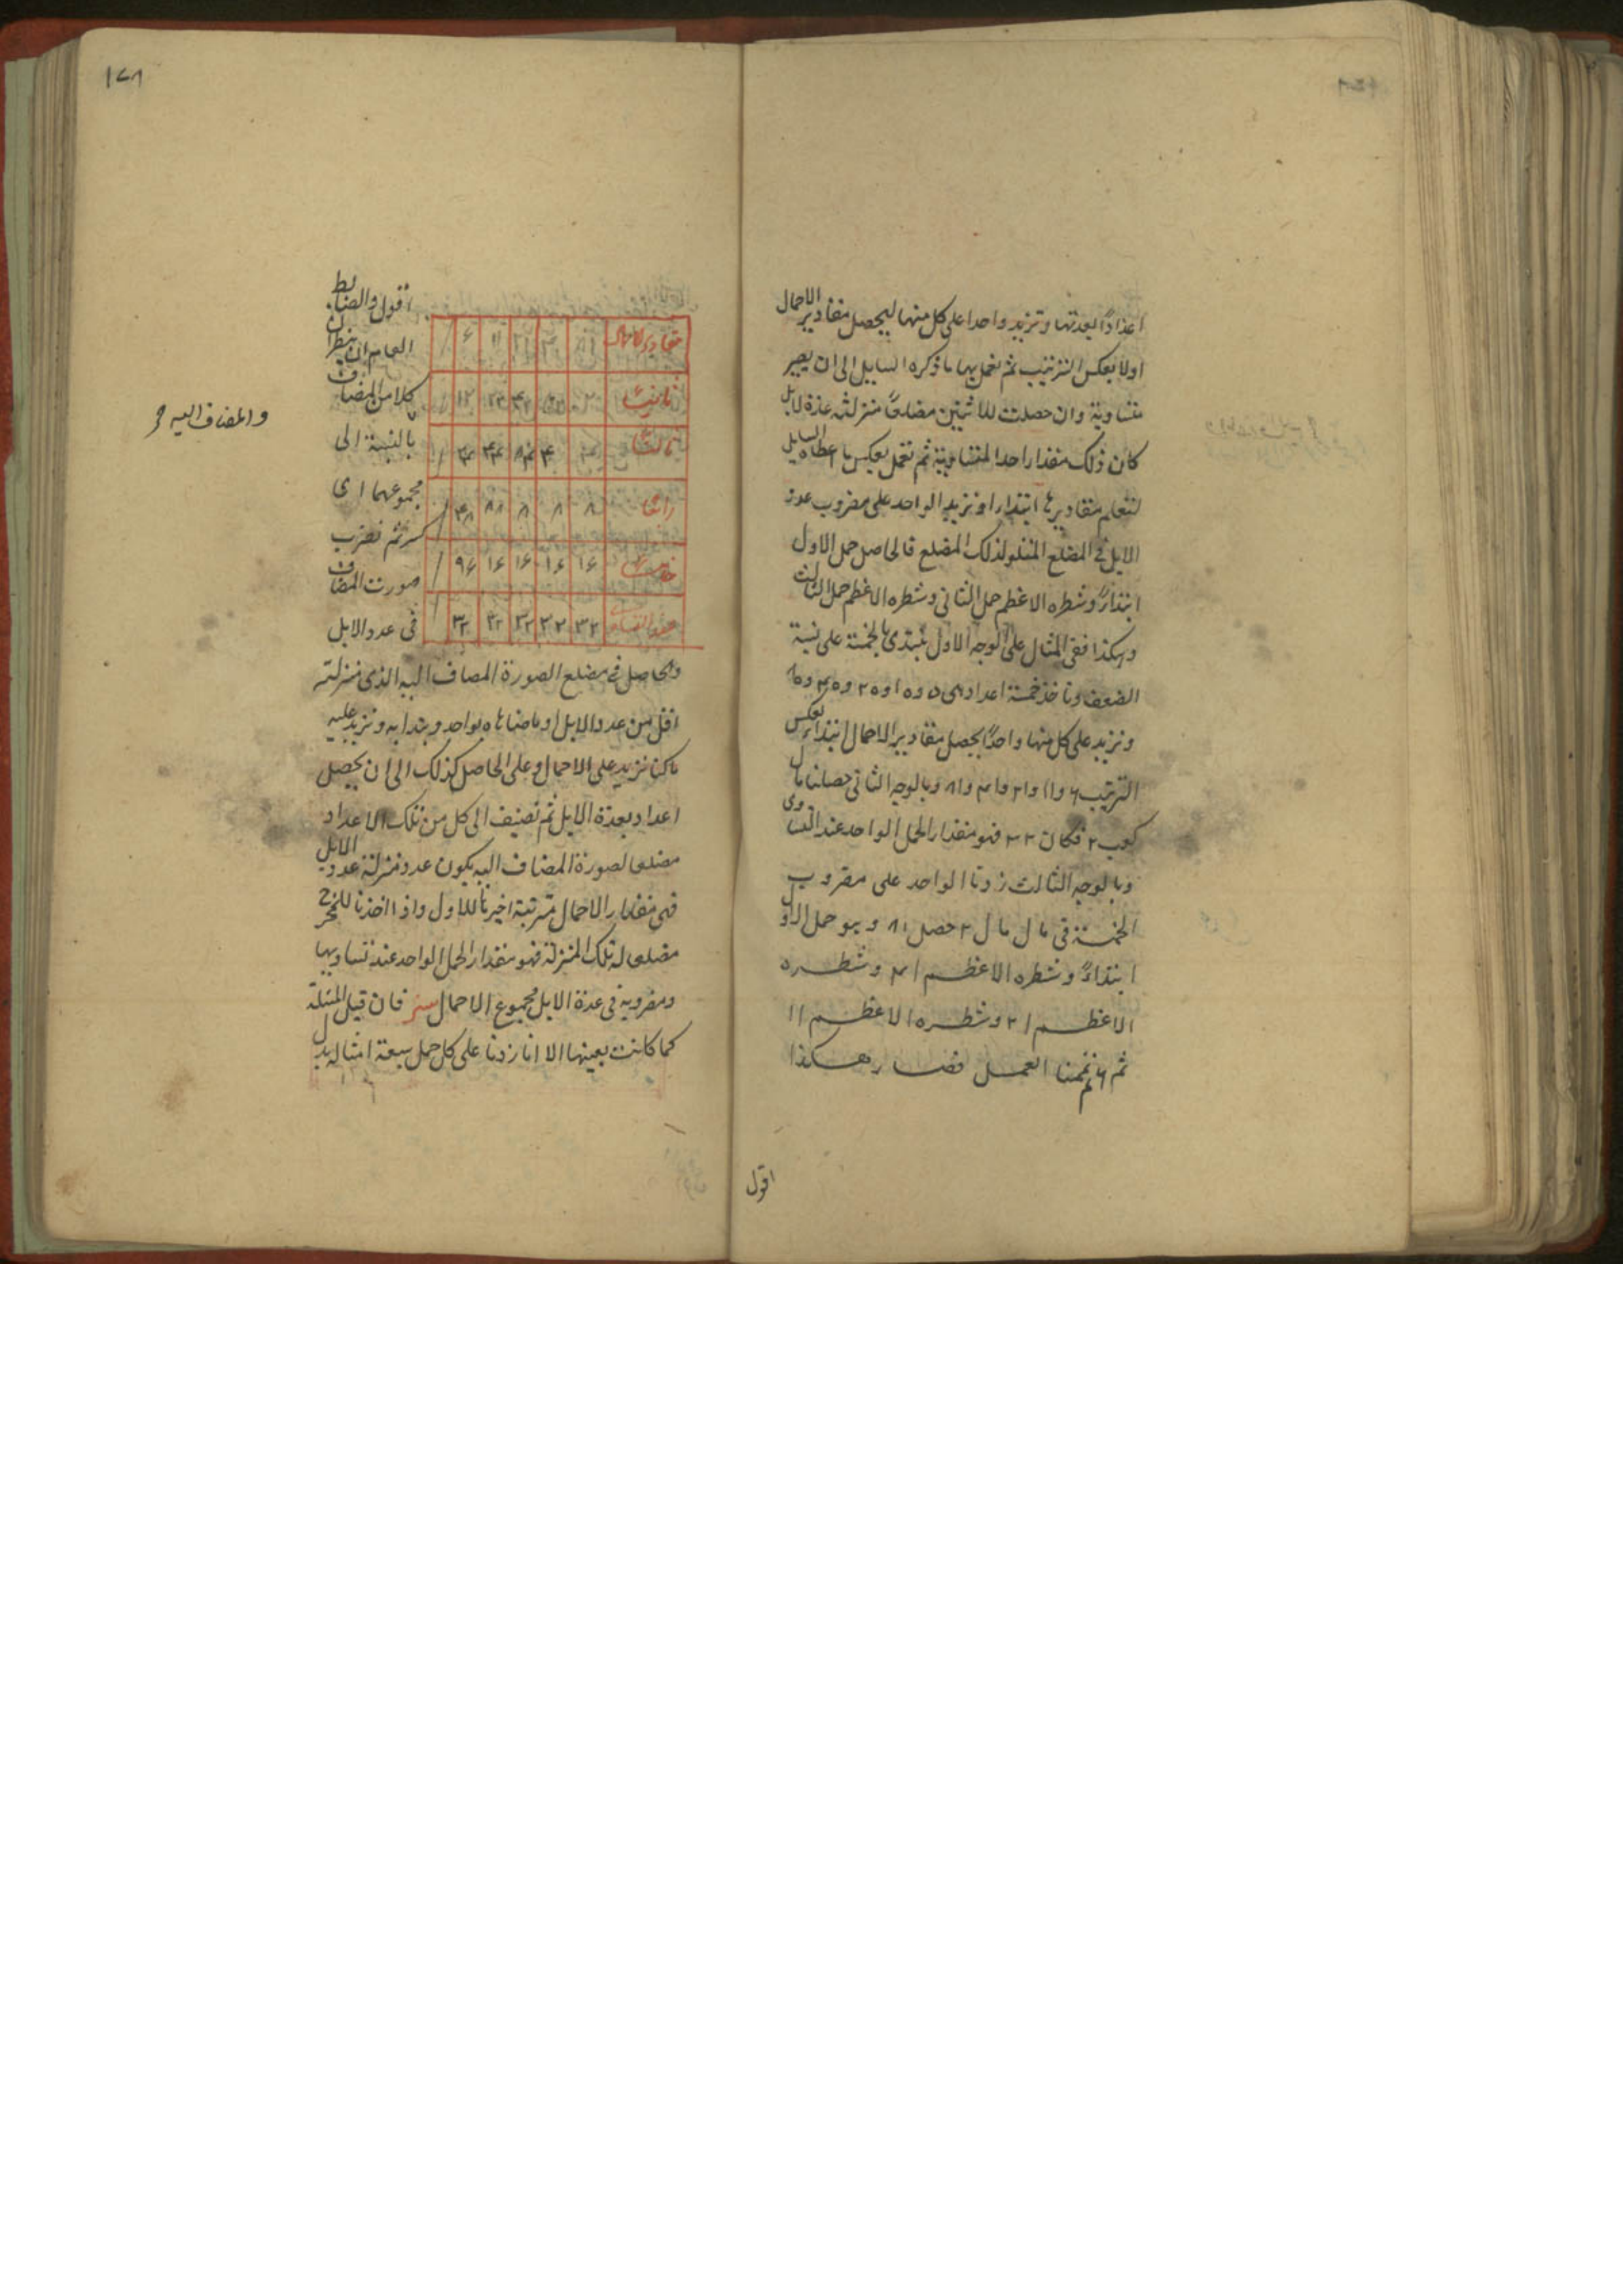 اعدادًا بعدتها وتزيد واحدا على كل منها ليحصل مقادير الاحمال
اولا بعكس الترتيب ثم نعمل بها ما ذكره السايل الى ان يصير
متساوية وان حصلت للاثنين مضلعًا منزلته عدة الابل
كان ذلك مقدار احد المتساوية ثم نعمل بعكس ما اعطاه السايل
لنعلم مقاديرها ابتدا او نزيد الواحد على مضروب عدد
الابل فى المضلع المتلو لذلك المضلع فالحاصل حمل الاول
ابتداءً وشطره الاعظم حمل الثانى وشطره الاعظم حمل الثالث
وهكذا ففى المثال على الوجه الاول نبتدى بالخمسة على نسبة
الضعف وناخذ خمسة اعداد هى ٥ و١٠ و٢٠ و٤٠ و٨٠
ونزيد على كل منها واحدًا يحصل مقادير الاحمال ابتداء بعكس
الترتيب ٦ و١١ و٢١ و٤١ و٨١ وبالوجه الثانى حصلنا مال
كعب ٢ فكان ٣٢ فهو مقدار الحمل الواحد عند التساوى
وبالوجه الثالث زدنا الواحد على مضروب
الخمسة فى مال مال ٢ حصل ٨١ وهو حمل الاول
ابتداءً وشطره الاعظم ٤١ وشطره
الاعظم ٢١ وشطره الاعظم ١١
ثم ٦ ثم تممنا العمل فصار هكذا
اقول
١٧٨
اقول والضابط
العام ان ينظر ان
كلا من المضاف
والمضاف اليه
بالنسبة الى
مجموعهما اى
كسر ثم نضرب
صورت المضاف
فى عدد الابل
مقادير الاحمال ٨١ ٤١ ٢١ ١١ ٦
ثانيت ٢ ٢٢ ١٢
ثالث ٤ ٤٤ ٢٤
رابعا ٨ ٨ ٨ ٨٨ ٤٨
خامسا ١٦ ١٦ ١٦ ١٦ ٩٦
عند التساوى ٣٢ ٣٢ ٣٢ ٣٢ ٣٢
والحاصل فى مضلع الصورة المضاف اليه الذى منزلته
اقل من عدد الابل او ما ضاهاه بواحد ويبتدا به ونزيد عليه
ما كنا نزيد على الاحمال وعلى الحاصل كذلك الى ان يحصل
اعداد بعدة الابل ثم نضيف الى كل من تلك الاعداد
مضلعا لصورة المضاف اليه يكون عدد منزلته عدد الابل
فهى مقادير الاحمال مترتبة اخيرًا للاول واذا اخذنا للمخرج
مضلعا له تلك المنزلة فهو مقدار الحمل الواحد عند تساويها
ومضروبه فى عدة الابل مجموع الاحمال فان قيل المسئلة
كما كانت بعينها الا انا زدنا على كل حمل سبعة امثاله بدل